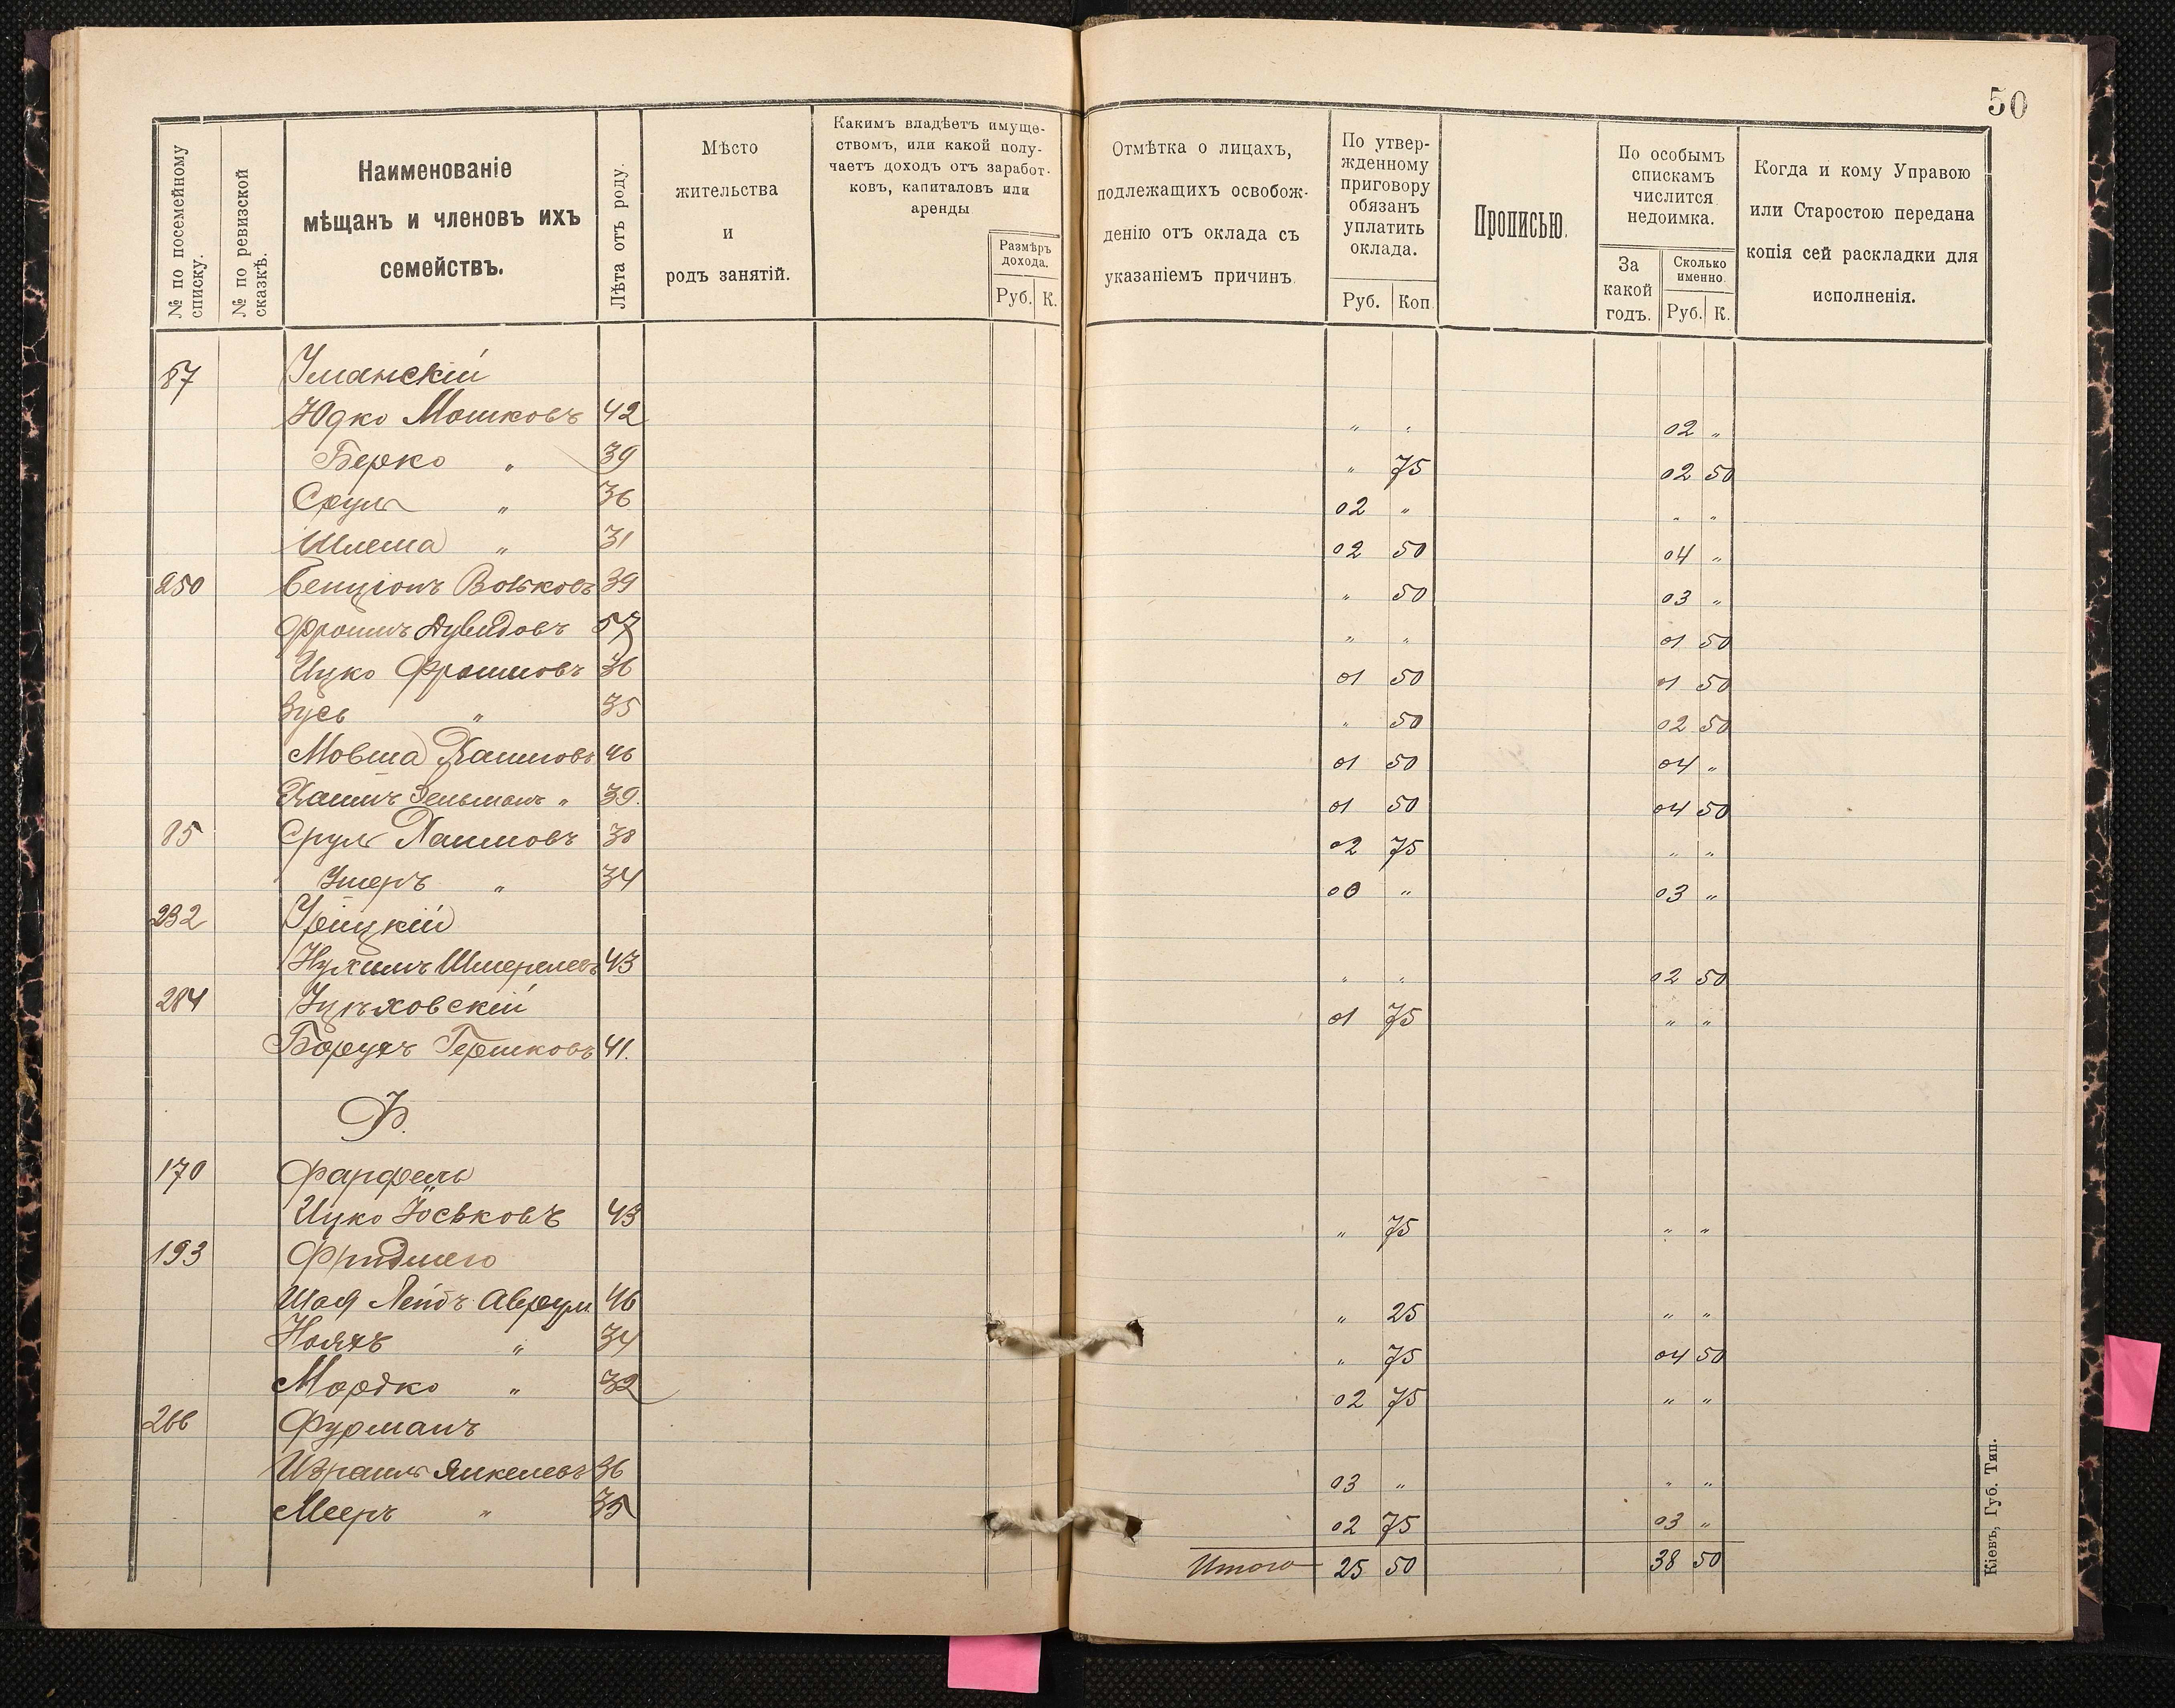 50
№ по посемейному списку.
№ по ревизской сказкѣ.
Наименованіе
мѣщанъ и членовъ ихъ
семействъ.
Лѣта отъ роду.
Мѣсто
жительства
и
родъ занятій.
Какимъ владѣетъ имуще-
ствомъ, или какой полу-
чаетъ доходъ отъ заработ-
ковъ, капиталовъ или
аренды
Размѣръ
дохода.
Руб. К.
Отмѣтка о лицахъ,
подлежащихъ освобож-
денію отъ оклада съ
указаніемъ причинъ.
По утвер-
жденному
приговору
обязанъ
уплатить
оклада.
Руб. Коп.
Прописью.
По особымъ
спискамъ
числится
недоимка.
За
какой
годъ.
Сколько
именно.
Руб. К.
Когда и кому Управою
или Старостою передана
копія сей раскладки для
исполненія.
87 Уманскій
Юдко Мошковъ 42 " " 02 "
Берко " 39 " 75 02 50
Сруль " 36 02 " " "
Шлема " 31 02 50 04 "
250 Бенціонъ Вольковъ 39 " 50 03 "
Фроимъ Дувидовъ 57 " " 01 50
Ицко Фроимовъ 36 01 50 01 50
Зусь " 35 " 50 02 50
Мовша Хаимовъ 46 01 50 04 "
Хаимъ Зельманъ " 39. 01 50 04 50
85 Сруль Хаимовъ 38 02 75 " "
Ушеръ " 34 00 " 03 "
232 Урицкій
Нухимъ Шмерелевъ 43 " " 02 50
284 01 75 " "
Борухъ Гершковъ 41.
Ф.
170 Фарфель
Ицко Іоськовъ 43 " 75 " "
193
Шая Лейбъ Аврум. 46 " 25 " "
Нояхъ " 34 " 75 04 50
Мордко " 32 02 75 " "
266 Фурманъ
Израиль Янкелевъ 36 03 " " "
Мееръ " 35 02 75 03 "
Итого 25 50 38 50
Кіевъ, Губ. Тип.